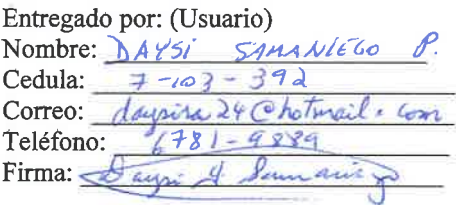 Entregado por: (Usuario)
Nombre: DAYSI SAMANIEGO P.
Cedula: 7-103-392
Correo: daysira24@hotmail.com
Teléfono: 6781-9839
Firma: Daysi A Samaniego